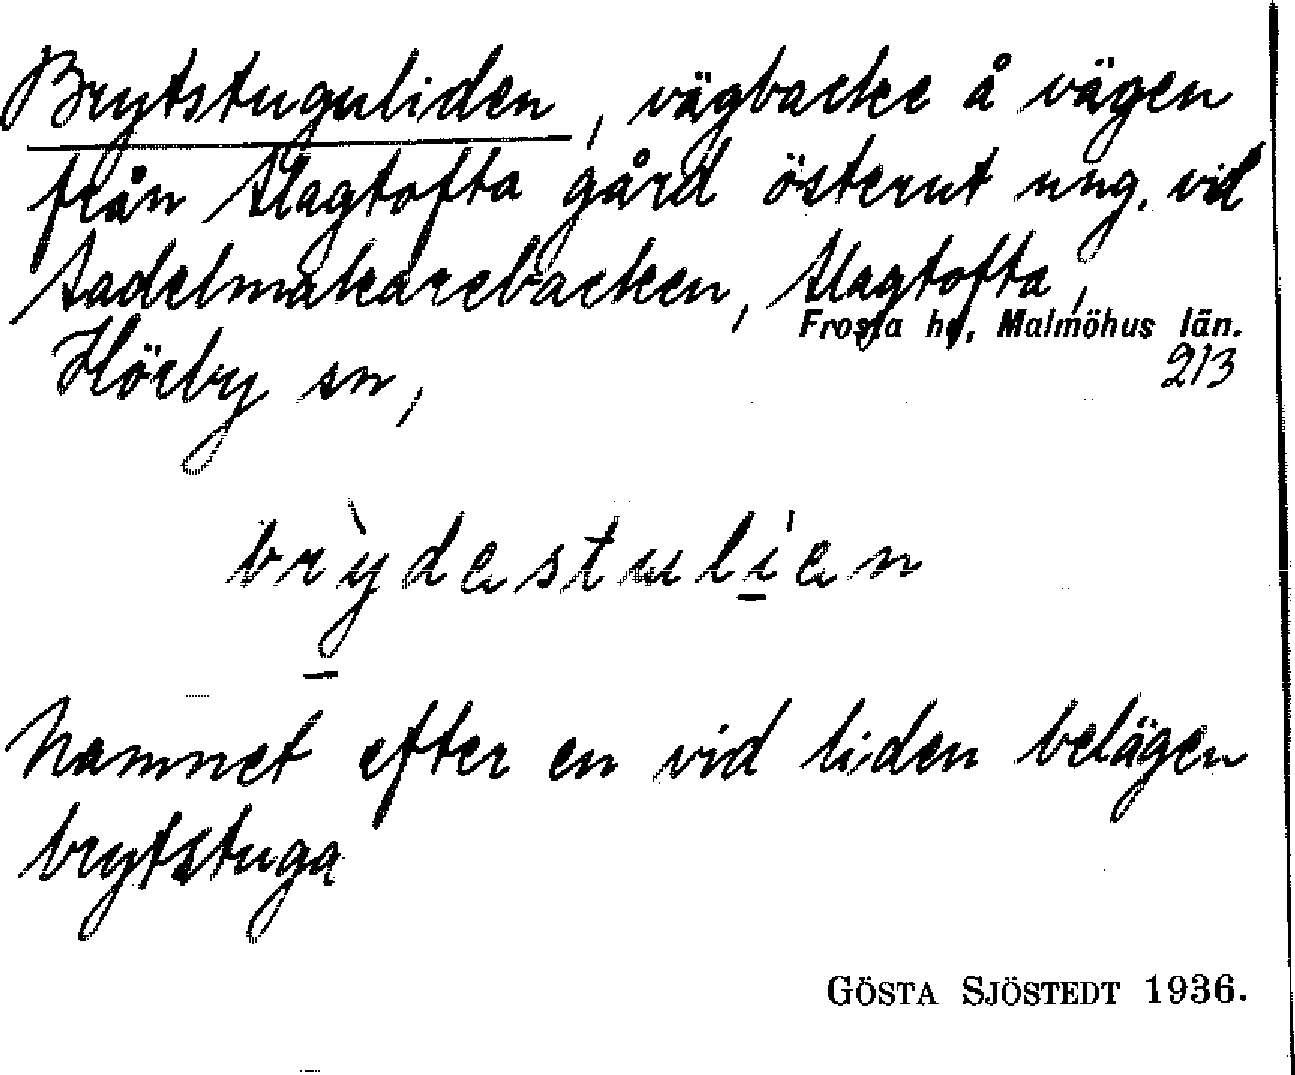 Brytstuguliden, vägbacke å vägen
från Slagtofta gård österut ung. vid
Sadelmakarebacken, Slagtofta,
Frosta hd, Malmöhus län.
213
Hörby sn,
brỳdestulíen
Namnet efter en vid liden belägen
brytstuga
GÖSTA SJÖSTEDT 1936.